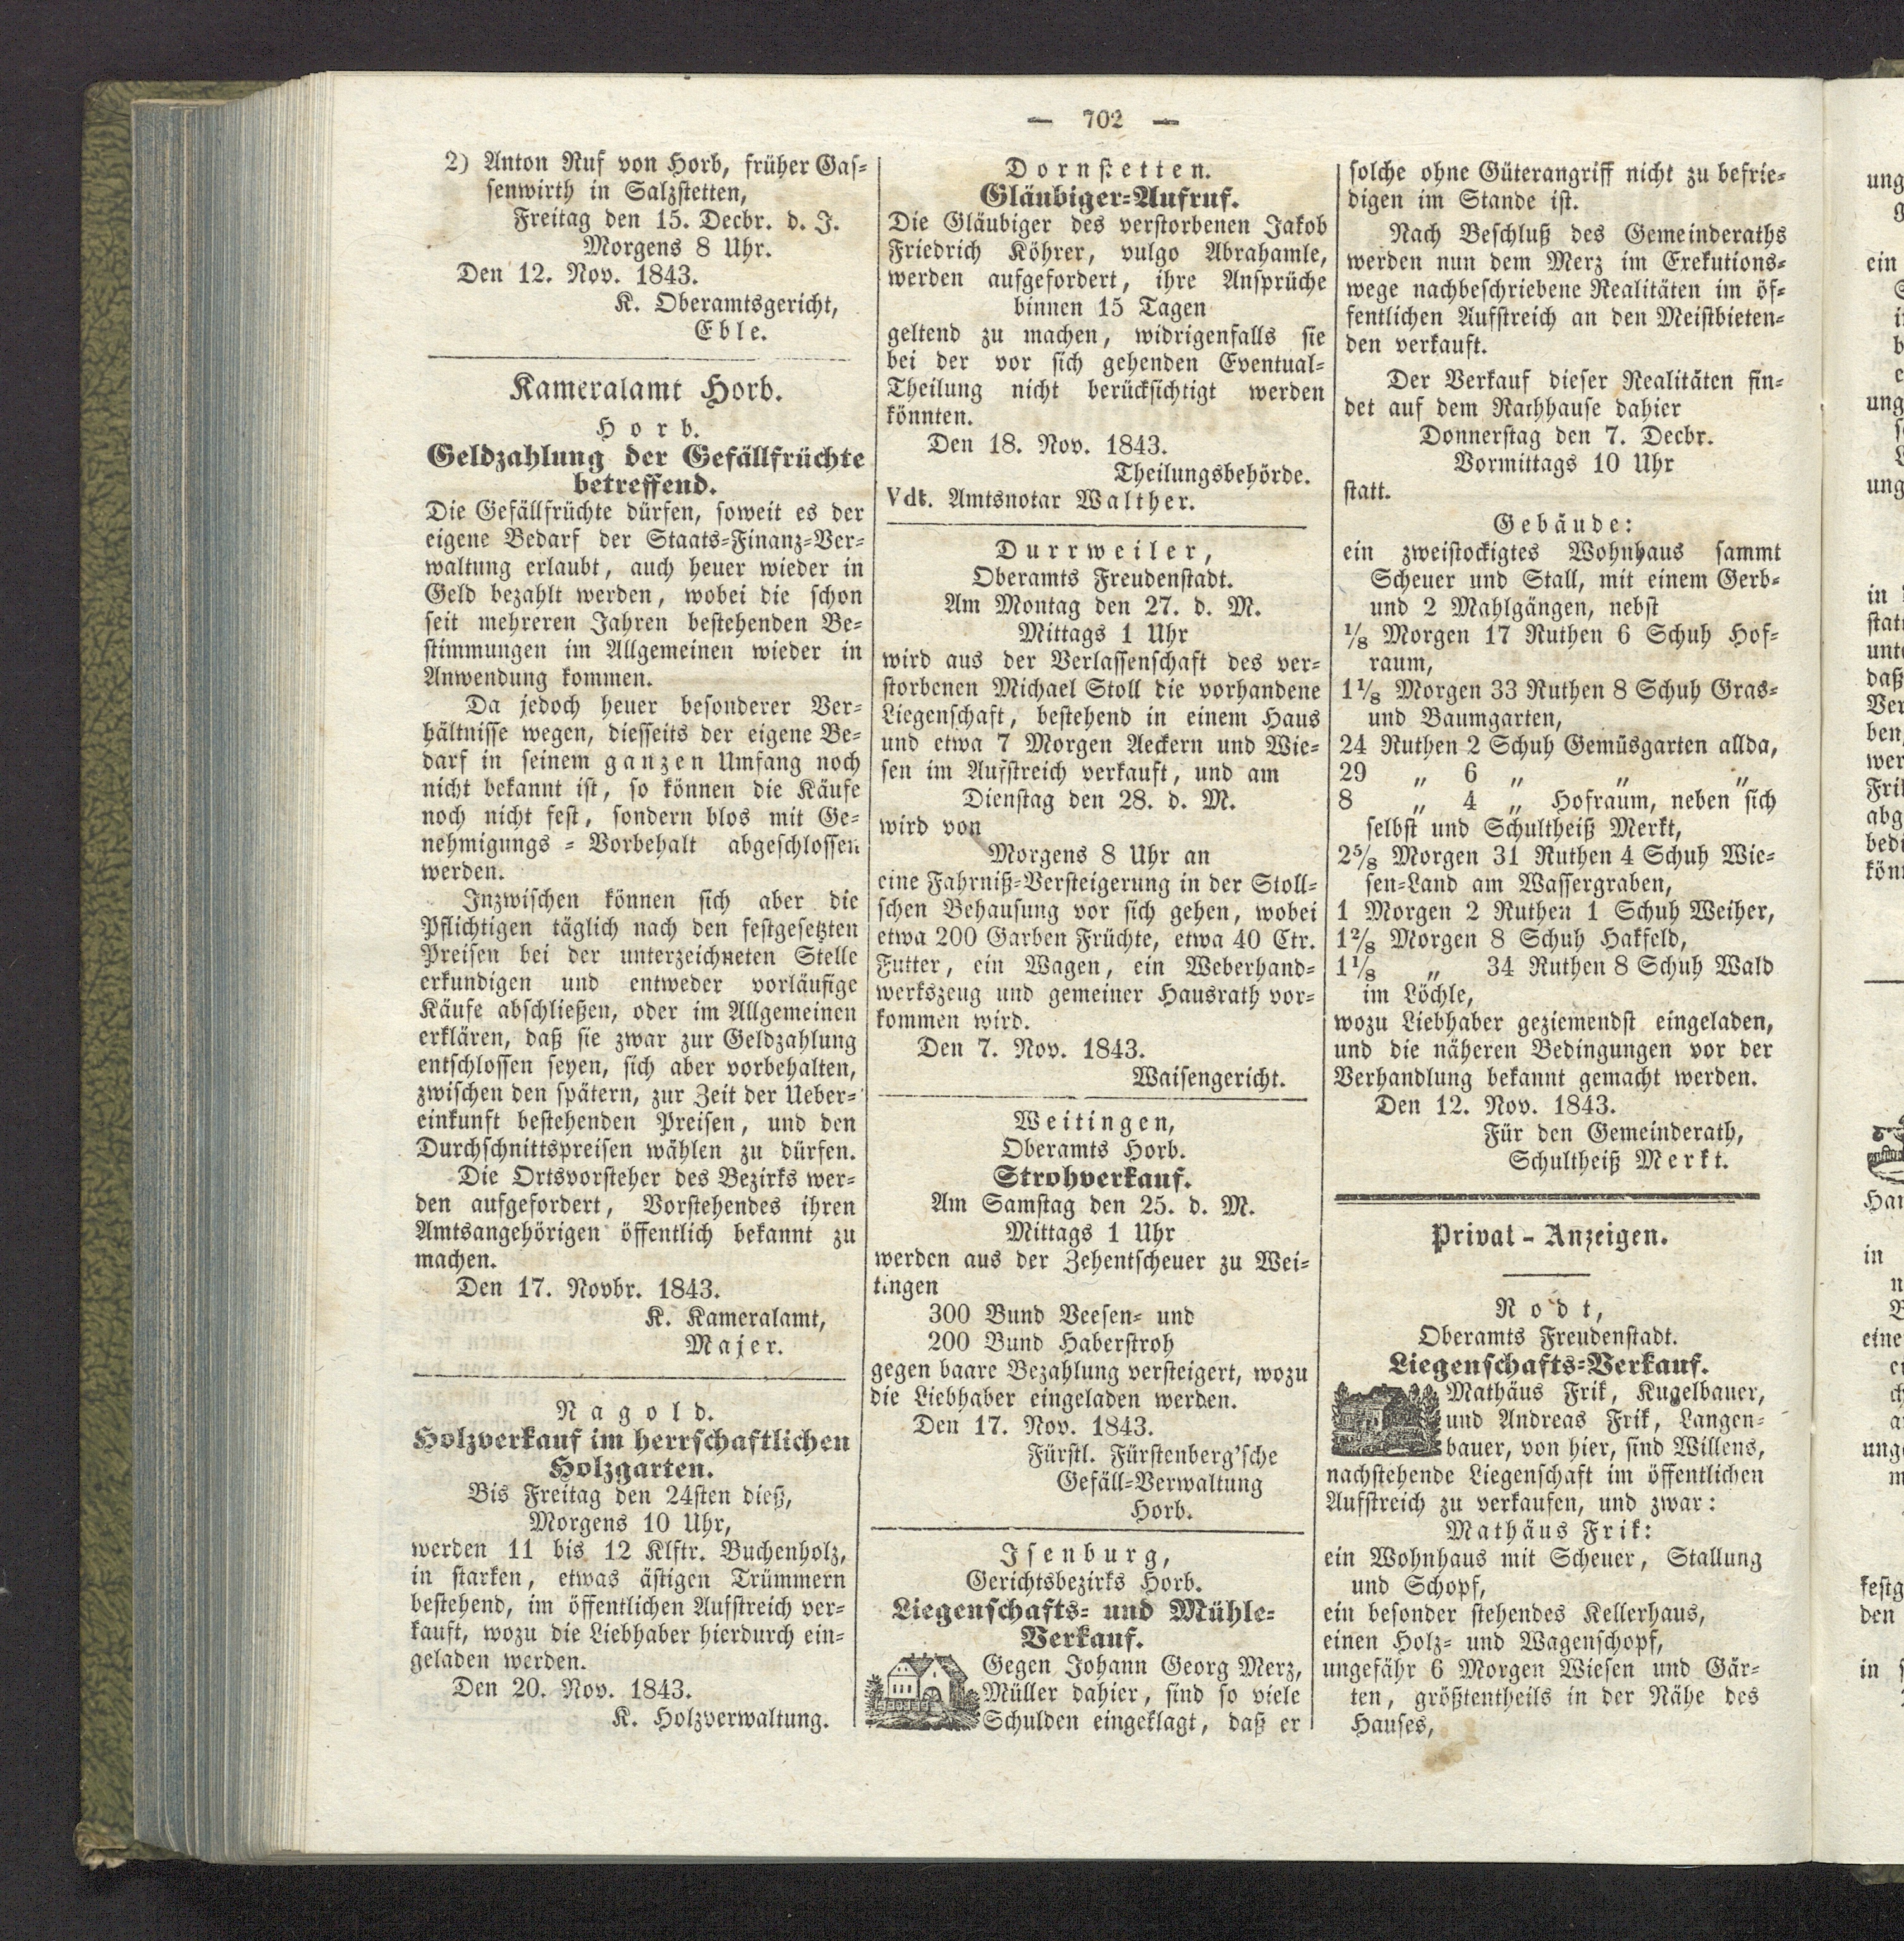 — 702 —
2) Anton Ruf von Horb, früher Gas-
senwirth in Salzstetten,
Freitag den 15. Decbr. d. J.
Morgens 8 Uhr.
Den 12. Nov. 1843.
K. Oberamtsgericht,
Eble.
Kameralamt Horb.
Horb.
Geldzahlung der Gefällfrüchte
betreffend.
Die Gefällfrüchte dürfen, soweit es der
eigene Bedarf der Staats-Finanz-Ver-
waltung erlaubt, auch heuer wieder in
Geld bezahlt werden, wobei die schon
seit mehreren Jahren bestehenden Be-
stimmungen im Allgemeinen wieder in
Anwendung kommen.
Da jedoch heuer besonderer Ver-
hältnisse wegen, diesseits der eigene Be-
darf in seinem ganzen Umfang noch
nicht bekannt ist, so können die Käufe
noch nicht fest, sondern blos mit Ge-
nehmigungs-Vorbehalt abgeschlossen
werden.
Inzwischen können sich aber die
Pflichtigen täglich nach den festgesetzten
Preisen bei der unterzeichneten Stelle
erkundigen und entweder vorläufige
Käufe abschließen, oder im Allgemeinen
erklären, daß sie zwar zur Geldzahlung
entschlossen seyen, sich aber vorbehalten,
zwischen den spätern, zur Zeit der Ueber-
einkunft bestehenden Preisen, und den
Durchschnittspreisen wählen zu dürfen.
Die Ortsvorsteher des Bezirks wer-
den aufgefordert, Vorstehendes ihren
Amtsangehörigen öffentlich bekannt zu
machen.
Den 17. Novbr. 1843.
K. Kameralamt,
Majer.
Nagold.
Holzverkauf im herrschaftlichen
Holzgarten.
Bis Freitag den 24sten dieß,
Morgens 10 Uhr,
werden 11 bis 12 Klftr. Buchenholz,
in starken, etwas ästigen Trümmern
bestehend, im öffentlichen Aufstreich ver-
kauft, wozu die Liebhaber hierdurch ein-
geladen werden.
Den 20. Nov. 1843.
K. Holzverwaltung.
Dornstetten.
Gläubiger-Aufruf.
Die Gläubiger des verstorbenen Jakob
Friedrich Köhrer, vulgo Abrahamle,
werden aufgefordert, ihre Ansprüche
binnen 15 Tagen
geltend zu machen, widrigenfalls sie
bei der vor sich gehenden Eventual-
Theilung nicht berücksichtigt werden
könnten.
Den 18. Nov. 1843.
Theilungsbehörde.
Vdt. Amtsnotar Walther.
Durrweiler,
Oberamts Freudenstadt.
Am Montag den 27. d. M.
Mittags 1 Uhr
wird aus der Verlassenschaft des ver-
storbenen Michael Stoll die vorhandene
Liegenschaft, bestehend in einem Haus
und etwa 7 Morgen Aeckern und Wie-
sen im Aufstreich verkauft, und am
Dienstag den 28. d. M.
wird von
Morgens 8 Uhr an
eine Fahrniß-Versteigerung in der Stoll-
schen Behausung vor sich gehen, wobei
etwa 200 Garben Früchte, etwa 40 Ctr.
Futter, ein Wagen, ein Weberhand-
werkszeug und gemeiner Hausrath vor-
kommen wird.
Den 7. Nov. 1843.
Waisengericht.
Weitingen,
Oberamts Horb.
Strohverkauf.
Am Samstag den 25. d. M.
Mittags 1 Uhr
werden aus der Zehentscheuer zu Wei-
tingen
300 Bund Veesen- und
200 Bund Haberstroh
gegen baare Bezahlung versteigert, wozu
die Liebhaber eingeladen werden.
Den 17. Nov. 1843.
Fürstl. Fürstenberg'sche
Gefäll-Verwaltung
Horb.
Isenburg,
Gerichtsbezirks Horb.
Liegenschafts- und Mühle-
Verkauf.
Gegen Johann Georg Merz,
Müller dahier, sind so viele
Schulden eingeklagt, daß er
solche ohne Güterangriff nicht zu befrie-
digen im Stande ist.
Nach Beschluß des Gemeinderaths
werden nun dem Merz im Exekutions-
wege nachbeschriebene Realitäten im öf-
fentlichen Aufstreich an den Meistbieten-
den verkauft.
Der Verkauf dieser Realitäten fin-
det auf dem Rathhause dahier
Donnerstag den 7. Decbr.
Vormittags 10 Uhr
statt.
Gebäude:
ein zweistockigtes Wohnhaus sammt
Scheuer und Stall, mit einem Gerb-
und 2 Mahlgängen, nebst
1/8 Morgen 17 Ruthen 6 Schuh Hof-
raum,
1 1/8 Morgen 33 Ruthen 8 Schuh Gras-
und Baumgarten,
24 Ruthen 2 Schuh Gemüsgarten allda,
29 „ 6 „ „ „
8 „ 4 „ Hofraum, neben sich
selbst und Schultheiß Merkt,
2 5/8 Morgen 31 Ruthen 4 Schuh Wie-
sen-Land am Wassergraben,
1 Morgen 2 Ruthen 1 Schuh Weiher,
1 2/8 Morgen 8 Schuh Hakfeld,
1 1/8 „ 34 Ruthen 8 Schuh Wald
im Löchle,
wozu Liebhaber geziemendst eingeladen,
und die näheren Bedingungen vor der
Verhandlung bekannt gemacht werden.
Den 12. Nov. 1843.
Für den Gemeinderath,
Schultheiß Merkt.
Privat-Anzeigen.
Rodt,
Oberamts Freudenstadt.
Liegenschafts-Verkauf.
Mathäus Frik, Kugelbauer,
und Andreas Frik, Langen-
bauer, von hier, sind Willens,
nachstehende Liegenschaft im öffentlichen
Aufstreich zu verkaufen, und zwar:
Mathäus Frik:
ein Wohnhaus mit Scheuer, Stallung
und Schopf,
ein besonder stehendes Kellerhaus,
einen Holz- und Wagenschopf,
ungefähr 6 Morgen Wiesen und Gär-
ten, größtentheils in der Nähe des
Hauses,